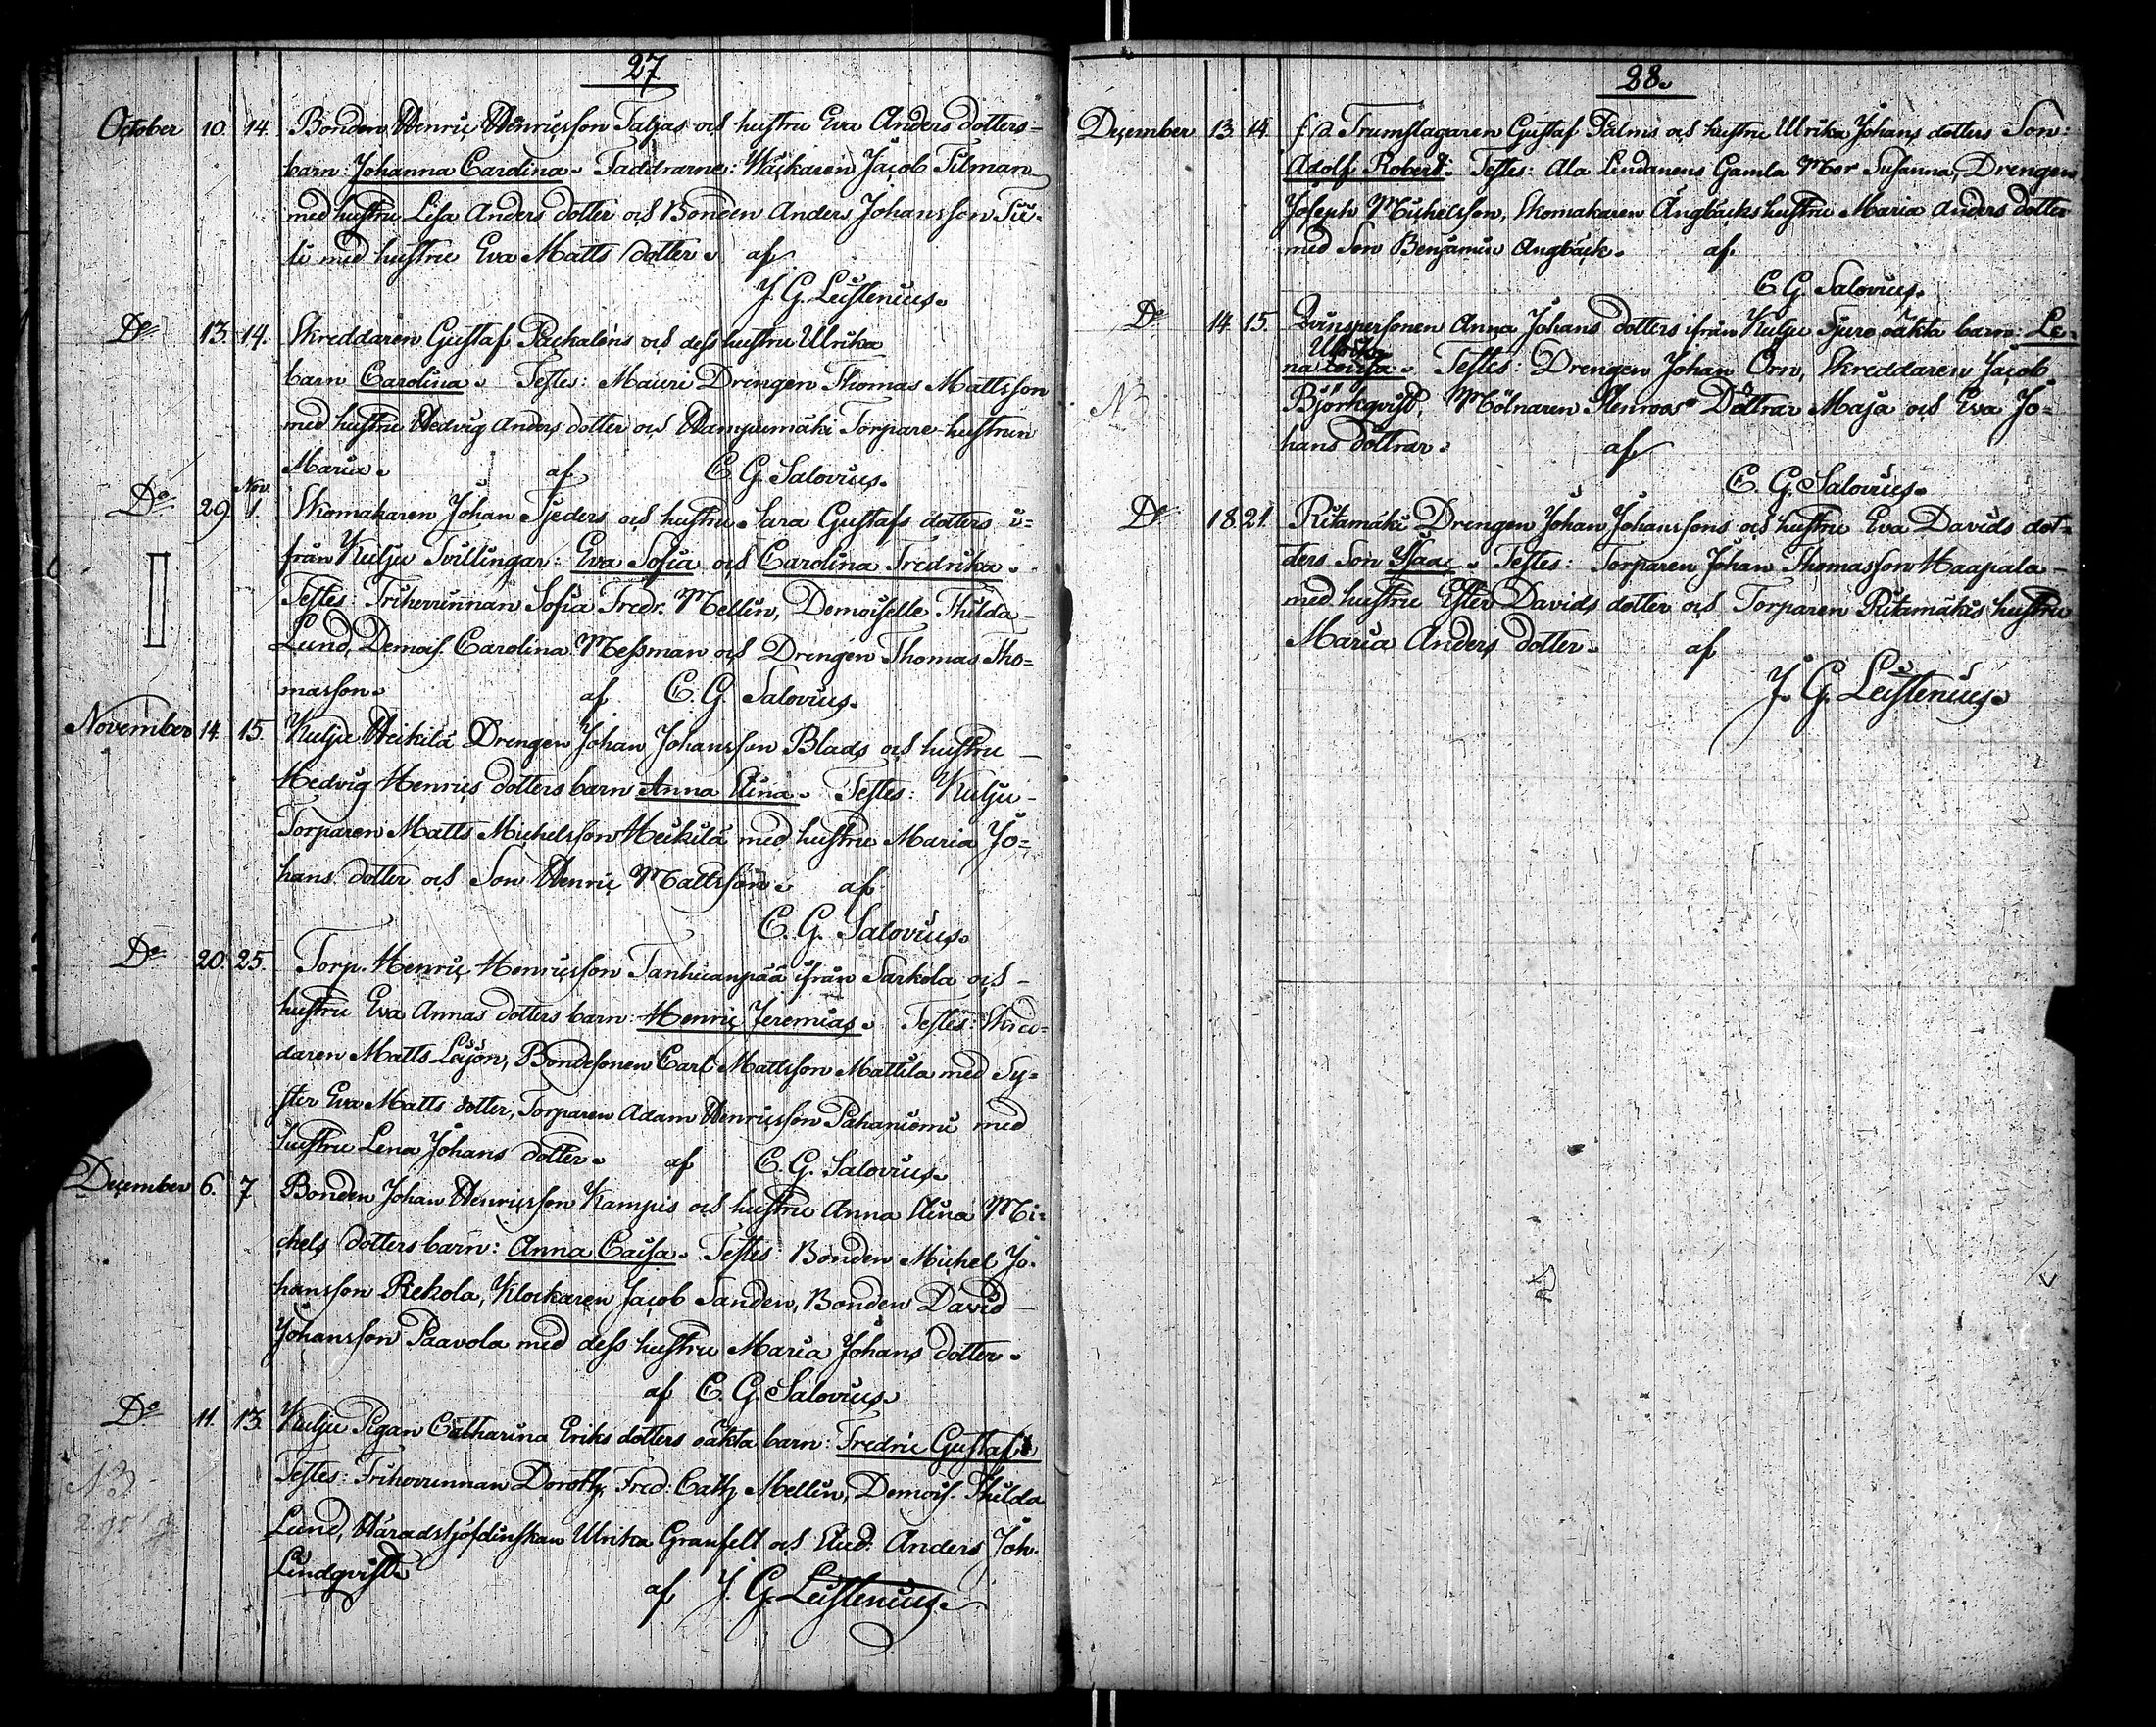 27
October 10. 14. Bonden Henric Henricsson Taljas och hustru Eva Anders dotters-
barn: Johanna Carolina. Faddrarne: Wäckaren Jacob Filman
med hustru Lisa Anders dotter och Bonden Anders Johansson Tii-
li med hustru Eva Matts dotter. af
J. G. Leistenius.
Do 13. 14. Skreddaren Gustaf Packaléns och dess hustru Ulrika
barn Carolina. Testes: Mauru Drengen Thomas Mattsson
med hustru Hedvig Anders dotter och Hampumäki Torpare-hustrun
Maria. af C. G. Salovius.
Do 29. Nov. 1. Skomakaren Johan Sjeders och hustru Sara Gustafs dotters i-
från Kulju Tvillingar: Eva Sofia och Carolina Fredrika.
Testes: Friherrinnan Sofia Fredr. Mellin, Demoiselle Thilda
Lund, Demois. Carolina Messman och Drengen Thomas Tho=
masson. af C. G. Salovius.
November 14. 15. Kulju Heikilä Drengen Johan Johansson Blads och hustru
Hedvig Henrics dotters barn Anna Stina. Testes: Kulju-
Torparen Matts Michelsson Heikilä med hustru Maria Jo=
hans dotter och Son Henric Mattsson. af
C. G. Salovius.
Do 20. 25. Torp. Henric Henricsson Tanhuanpää ifrån Sarkola och
hustru Eva Annas dotters barn: Henric Jeremias. Testes: Skred=
daren Matts Lejon, Bondesonen Carl Mattsson Mattila med Sy=
ster Eva Matts dotter, Torparen Adam Henricsson Pahaniemi med
hustru Lena Johans dotter. af C. G. Salovius.
December 6. 7. Bonden Johan Henricsson Kampis och hustru Anna Stina Mi=
chels dotters barn: Anna Caisa. Testes: Bonden Michel Jo-
hansson Rekola, Klockaren Jacob Sanden, Bonden David
Johansson Paavola med dess hustru Maria Johans dotter.
af C. G. Salovius.
Do 11. 13. Kulju Pigan Catharina Eriks dotters oäkta barn: Fredric Gustaf.
NB
Testes: Friherrinnan Doroth. Fred: Cath. Mellin, Demois. Thilda
Lund, Häradshöfdinskan Ulrika Granfelt och Stud. Anders Joh.
Lindqvist. af J. G. Leistenius.
28.
December 13 14. f/d Trumslagaren Gustaf Palms och hustru Ulrika Johans dotters Son:
Adolf Robert. Testes: Ala Lindanens Gamla Mor Susanna, Drengen
Joseph Michelsson, Skomakaren Ängbäcks hustru Maria Anders dotter
med Son Benjamin Ängbäck. af
C. G. Salovius.
Do 14. 15. Qvinspersonen Anna Johans dotters ifrån Kulju Sjuro oäkta barn: Le-
Ulrika
na Lovisa. Testes: Drengen Johan Örn, Skreddaren Jacob
NB Björkqvist, Mölnaren Stenroos Döttrar Maja och Eva Jo=
hans döttrar. af
C. G. Salovius.
Do 18. 21. Ritamäki Drengen Johan Johanssons och hustru Eva Davids dot=
ters Son Isaac. Testes: Torparen Johan Thomasson Haapala
med hustru Ester Davids dotter och Torparen Ritamäkis hustru
Maria Anders dotter. af
J. G. Leistenius.